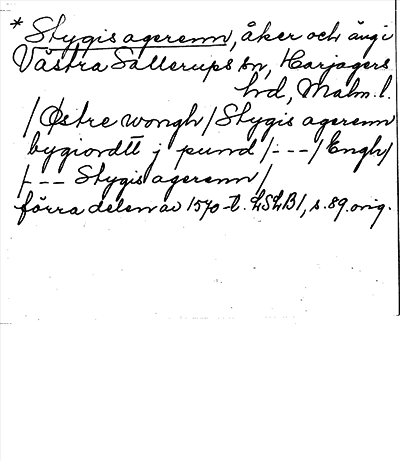 * Stygis agerenn, åker och äng i
Västra Sallerups sn, Harjagers
hd, Malm. l.
/Østre wongh/ Stygis agerenn
bygiordtt j pund /---/ Engh/
/--- Stygis agerenn/
förra delen av 1570-t. LSLB1, s. 89. orig.